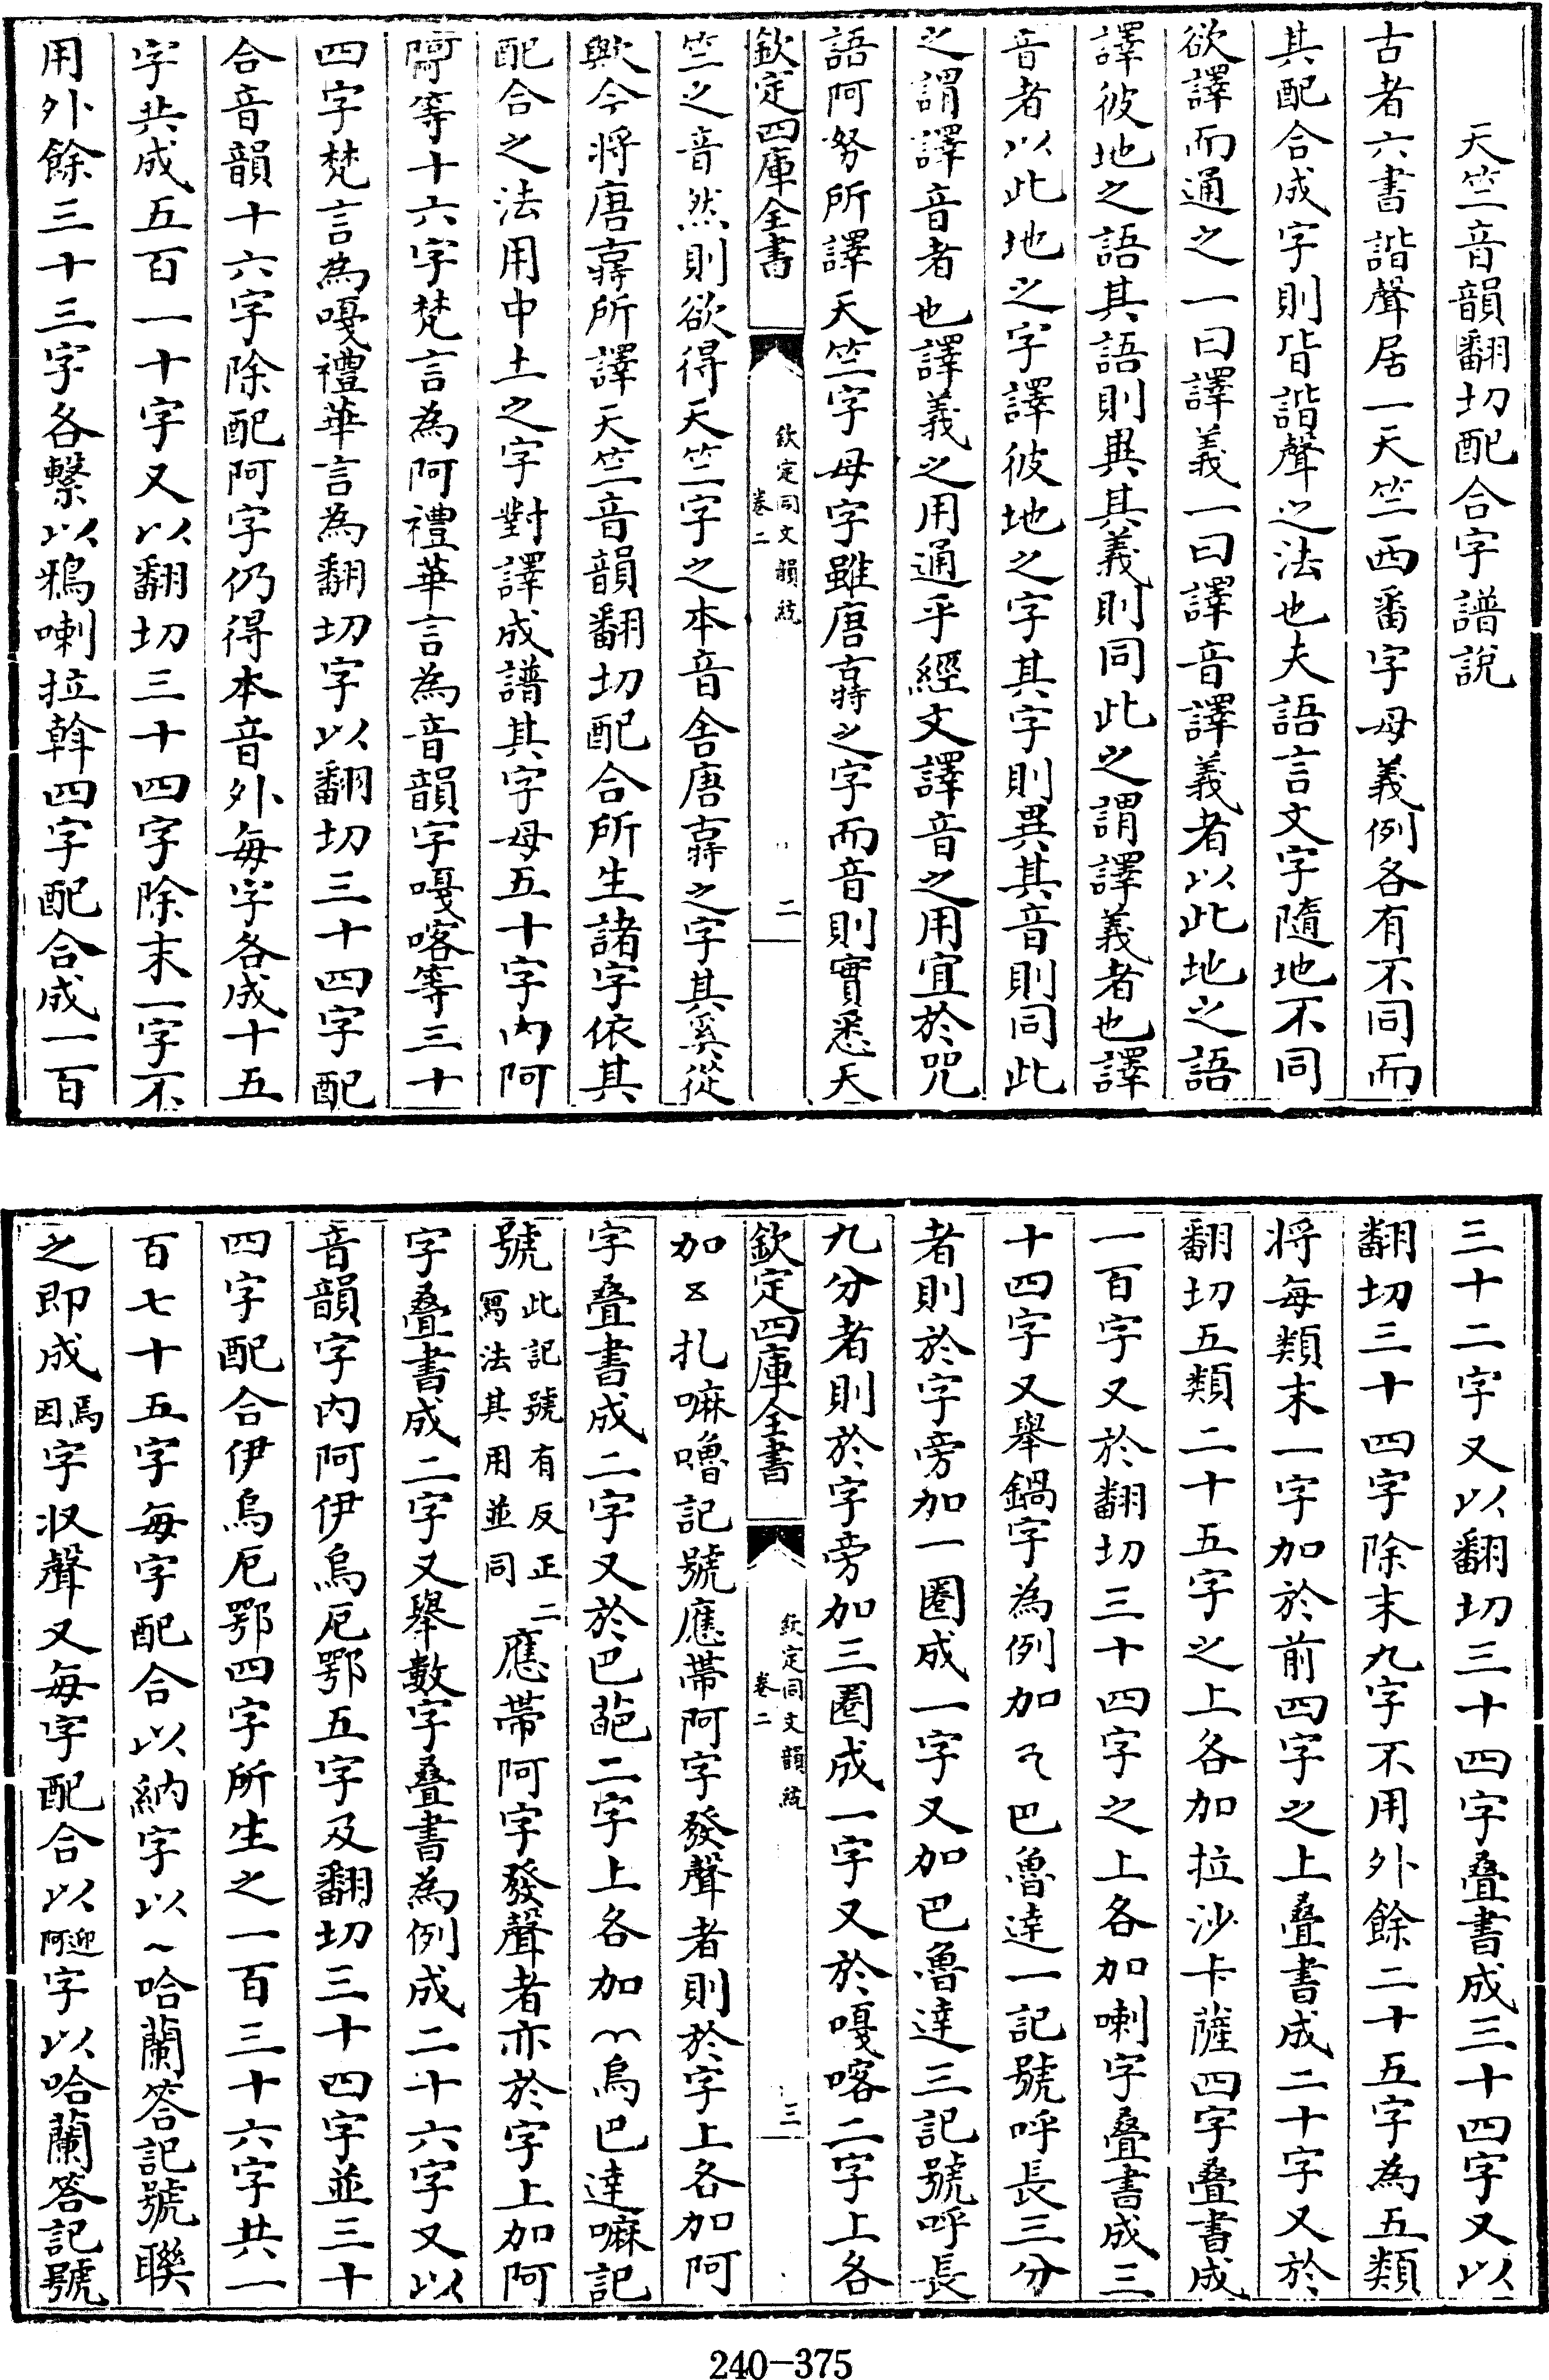 天竺音韻翻切配合字譜說
古者六書諧聲居一天竺西番字母義例各有不同而
其配合成字則皆諧聲之法也夫語言文字隨地不同
欲譯而通之一曰譯義一曰譯音譯義者以此地之語
譯彼地之語其語則異其義則同此之謂譯義者也譯
音者以此地之字譯彼地之字其字則異其音則同此
之謂譯音者也譯義之用通乎經文譯音之用宜於咒
語阿努所譯天竺字母字雖唐古特之字而音則實悉天
欽定四庫全書
欽定同文韻統
卷二
二
竺之音然則欲得天竺字之本音舍唐古特之字其奚從
歟今將唐古特所譯天竺音韻翻切配合所生諸字依其
配合之法用中土之字對譯成譜其字母五十字內阿
等十六字梵言為阿禮華言為音韻字嘎喀等三十
四字梵言為嘎禮華言為翻切字以翻切三十四字配
合音韻十六字除配阿字仍得本音外每字各成十五
字共成五百一十字又以翻切三十四字除末一字不
用外餘三十三字各繫以鴉喇拉斡四字配合成一百
三十二字又以翻切三十四字疊書成三十四字又以
翻切三十四字除末九字不用外餘二十五字為五類
將每類末一字加於前四字之上疊書成二十字又於
翻切五類二十五字之上各加拉沙卡薩四字疊書成
一百字又於翻切三十四字之上各加喇字疊書成三
十四字又舉鍋字為例加巴魯達一記號呼長三分
者則於字旁加一圈成一字又加巴魯達三記號呼長
九分者則於字旁加三圈成一字又於嘎喀二字上各
欽定四庫全書
欽定同文韻統
卷二
三
加扎嘛嚕記號應帶阿字發聲者則於字上各加阿
字疊書成二字又於巴葩二字上各加烏巴達嘛記
號此記號有反正二寫法其用並同應帶阿字發聲者亦於字上加阿
字疊書成二字又舉數字疊書為例成二十六字又以
音韻字內阿伊烏厄鄂五字及翻切三十四字並三十
四字配合伊烏厄鄂四字所生之一百三十六字共一
百七十五字每字配合以納字以~哈蘭答記號聯
之即成因焉字收聲又每字配合以阿迎字以哈蘭答記號
240-375